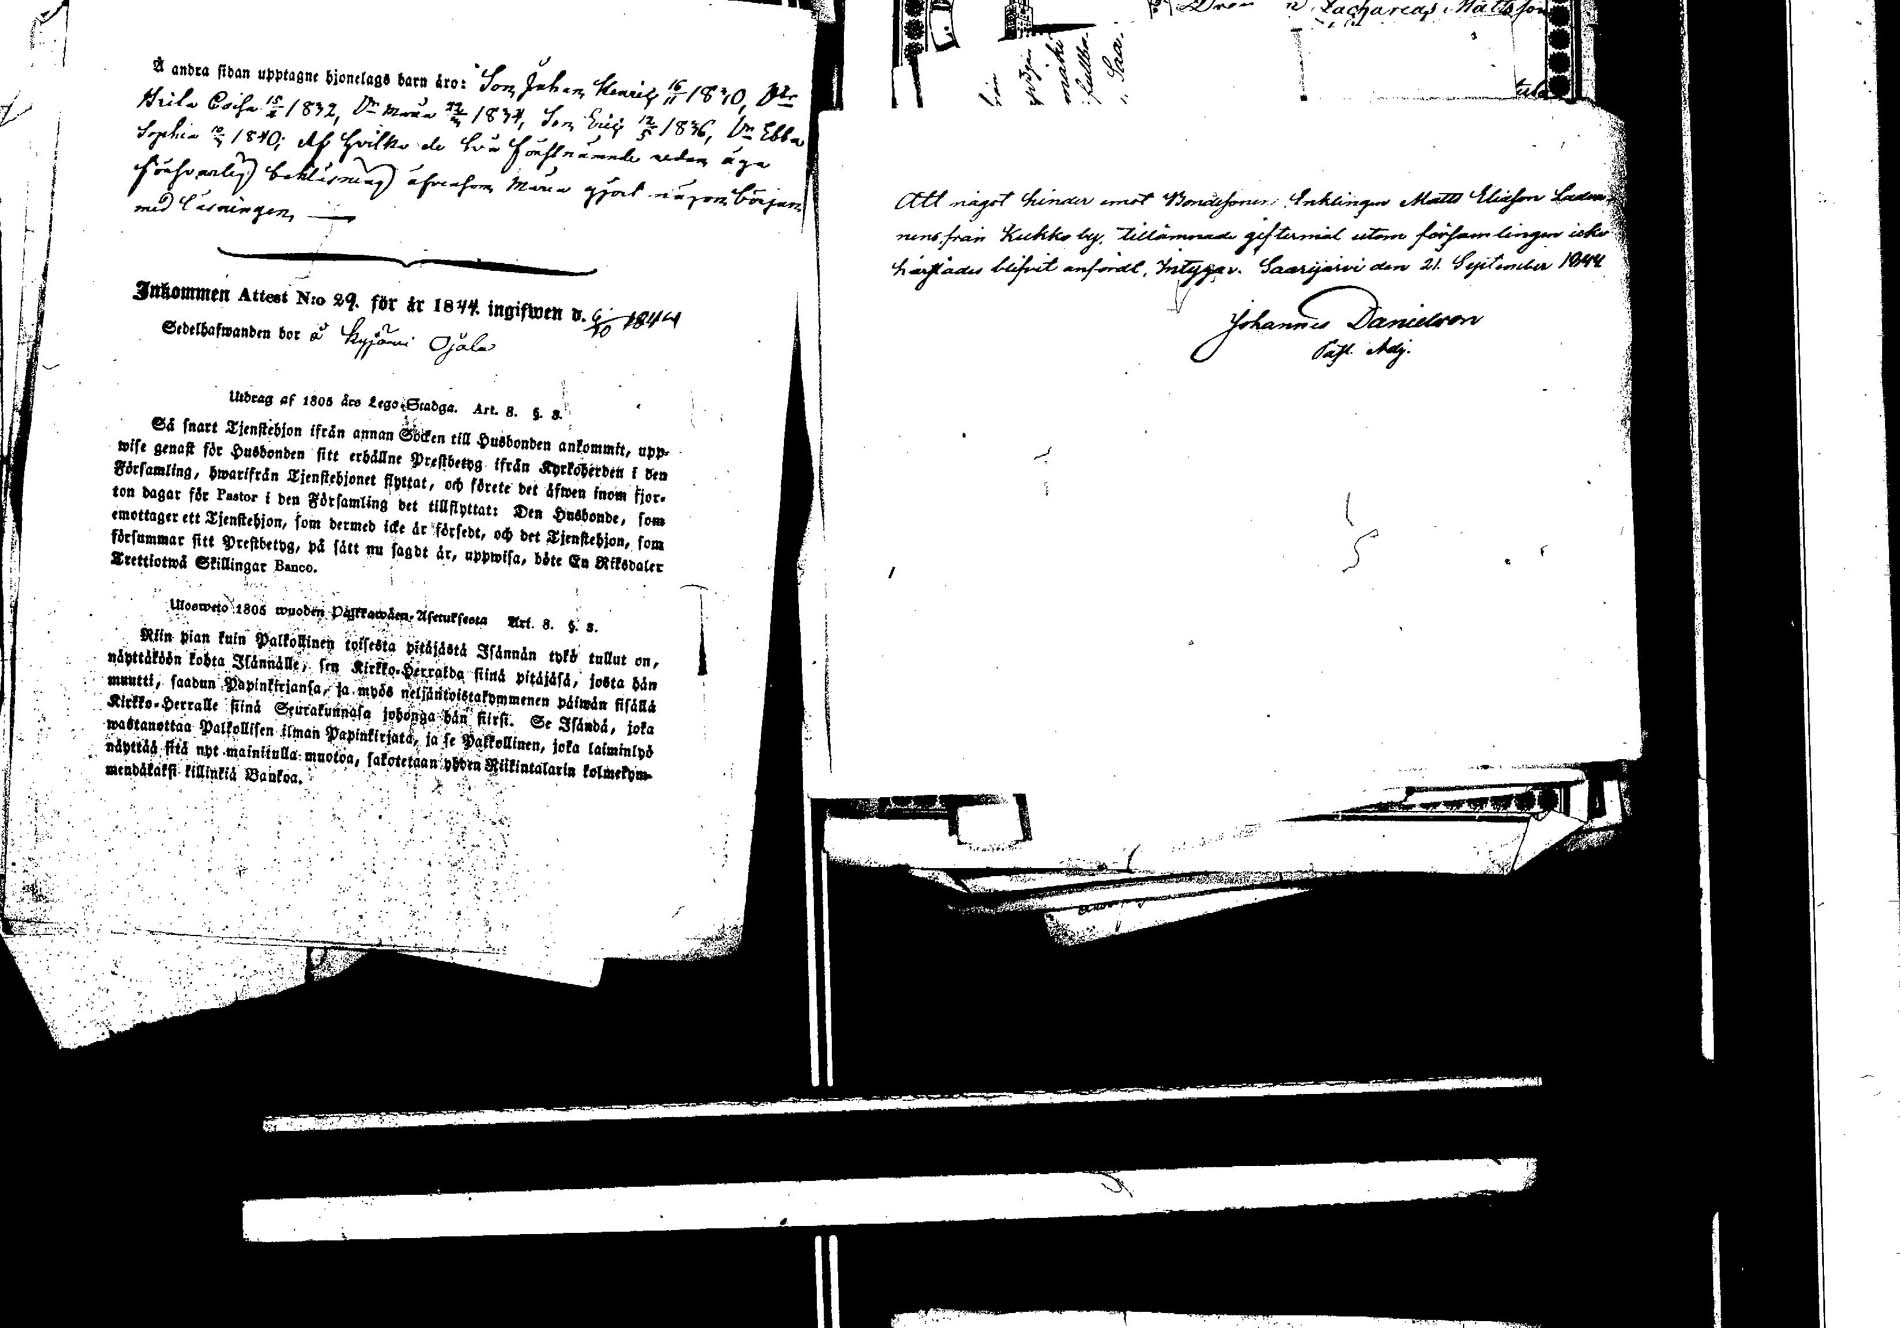 Å andra sidan upptagne hjonelags barn äro: Son Johan Henric 16/11 1830, Dr
Brita Caisa 15/2 1832, Dr Maria 1834, Son Eric 12/5 1836, Dr Ebba
Sophia 1840; Af hvilka de två förstnämnde redan äga
försvarlig bekläsning äfvensom Maria gjort någon början
med läsningen
Inkommen Attest N:o 29. för år 1844. ingifwen d. 6/10 1844
Sedelhafwanden bor å Kyjärvi Ojala
Utdrag af 1805 års Lego-Stadga. Art. 8. §. 3.
Så snart Tjenstehjon ifrån annan Socken till Husbonden ankommit, upp-
wise genast för Husbonden sitt erhållne Prestbetyg ifrån Kyrkoherden i den
Församling, hwarifrån Tjenstehjonet flyttat, och förete det äfwen inom fjor-
ton dagar för Pastor i den Församling det tillflyttat: Den Husbonde, som
emottager ett Tjenstehjon, som dermed icke är försedt, och det Tjenstehjon, som
försummar sitt Prestbetyg, på sätt nu sagdt är, uppwisa, böte En Riksdaler
Trettiotwå Skillingar Banco.
Ulosweto 1805 wuoden Palkkawäen-Asetuksesta Art. 8. §. 3.
Niin pian kuin Palkollinen toisesta pitäjästä Isännän tykö tullut on,
näyttäköön kohta Isännälle, sen Kirkko-Herralda siinä pitäjäsä, josta hän
muutti, saadun Papinkirjansa, ja myös neljäntoistakymmenen päiwän sisällä
Kirkko-Herralle siinä Seurakunnasa johonga hän siirsi. Se Isändä, joka
wastanottaa Palkollisen ilman Papinkirjata, ja se Palkollinen, joka laiminlyö
näyttää sitä nyt mainitulla muotoa, sakotetaan yhden Riikintalarin kolmekym-
mendäkaksi killinkiä Bankoa.
Zacharias Mattsson
Att något hinder emot Bondesonen, Enklingen Matts Eliason Ladon-
nens från Kukko by, tillämnade giftermål utom församlingen icke
härstädes blifvit anfördt, Intygar. Saarijärvi den 21 September 1844
Johannes Danielson
Past. Adj.